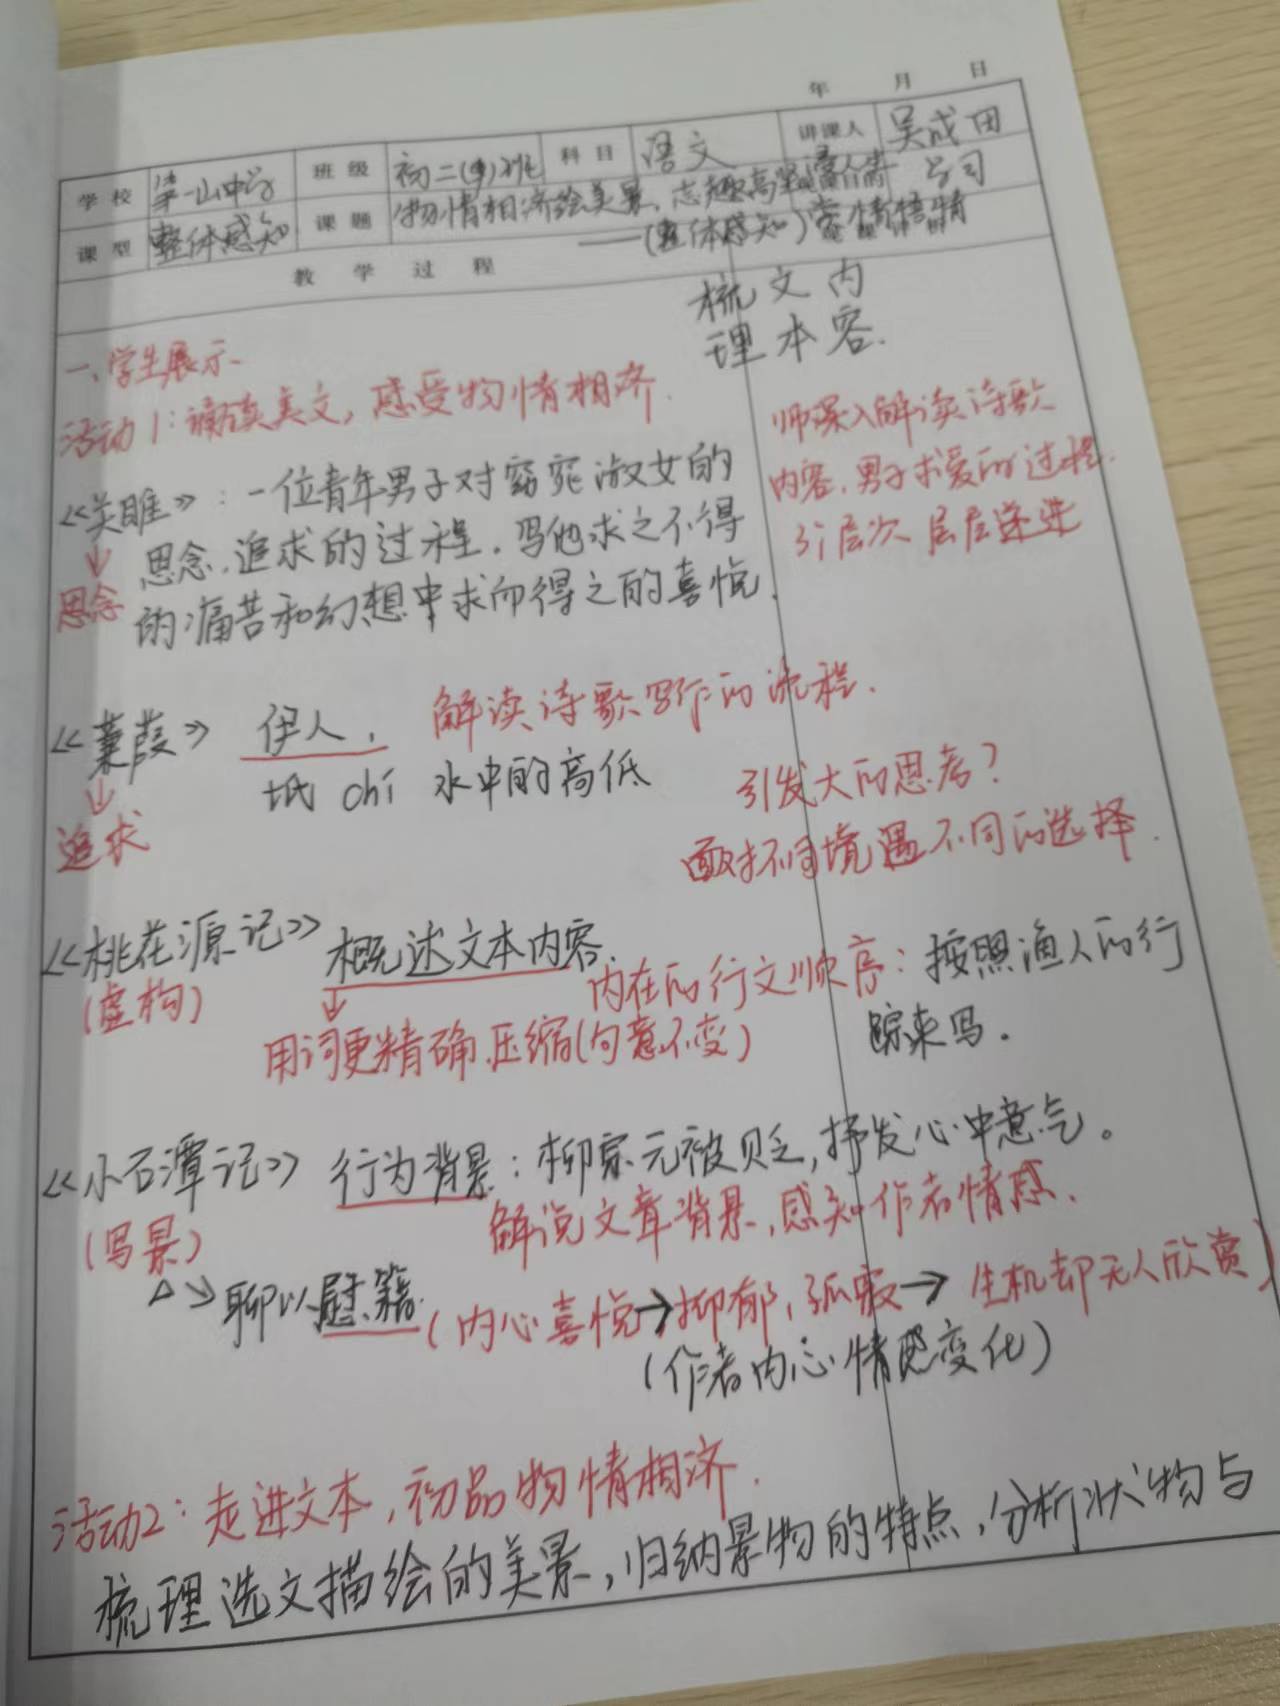 年 月 日
学校 第一山中学 班级 初二(4)班 科目 语文 讲课人 吴成田
课型 整体感知 课题 物情相济绘美景，志趣高
——(整体感知)
教学过程
梳文内
理本容.
一、学生展示
活动1：诵读美文，感受物情相济.
师深入解读诗歌
内容，男子求爱的过程.
引层次 层层递进
《关雎》：一位青年男子对窈窕淑女的
思念
思念.追求的过程.写他求之不得
的痛苦和幻想中求而得之的喜悦.
《蒹葭》 伊人. 解读诗歌写作的流程.
追求
坻 chí 水中的高低
引发大的思考？
面对不同境遇不同的选择.
《桃花源记》 概述文本内容.
(虚构)
内在的行文顺序：按照渔人的行
踪来写.
用词更精确.压缩(句意不变)
《小石潭记》 行为背景：柳宗元被贬，抒发心中意气。
(写景)
解说文章背景，感知作者情感.
聊以慰籍.(内心喜悦→抑郁，孤寂→生机却无人欣赏)
(作者内心情感变化)
活动2：走进文本，初品物情相济.
梳理选文描绘的美景，归纳景物的特点，分析状物与